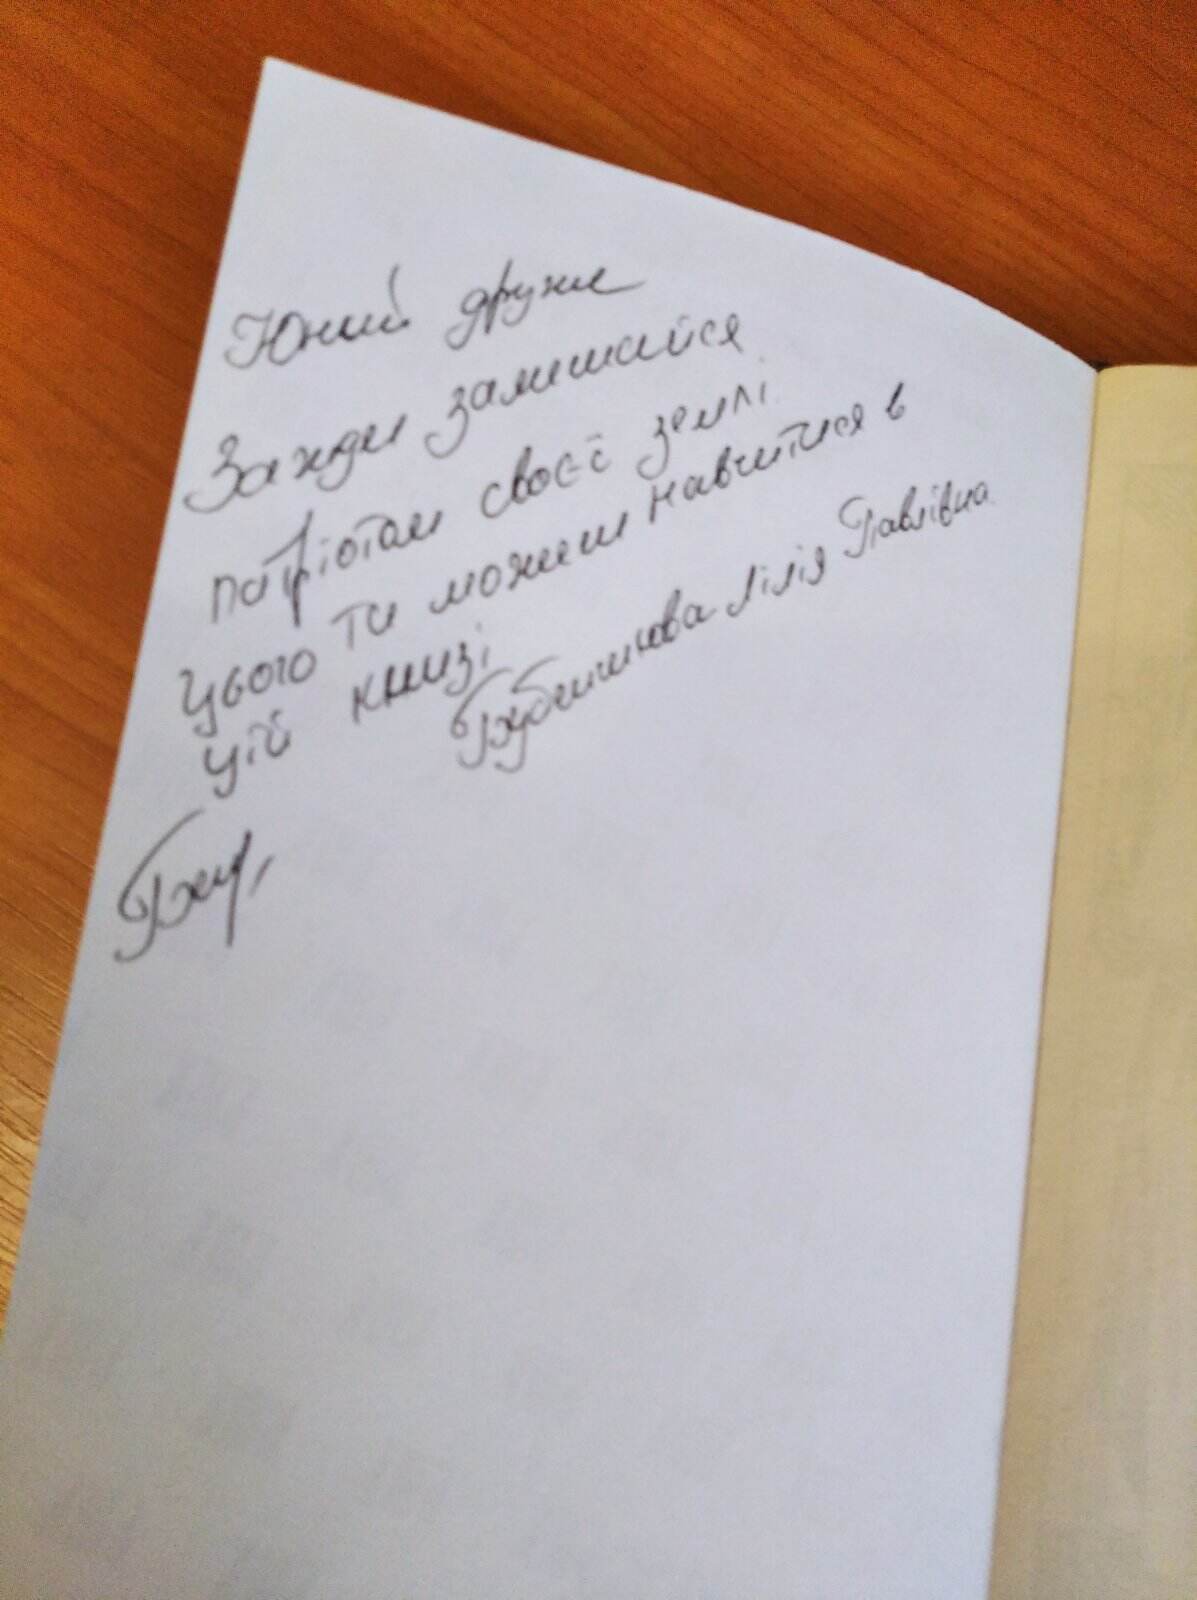 Юний друже
Зажди залишайся
патріотом своєї землі.
Цього ти можеш навчитися в
цій книзі
Лілія Павлівна